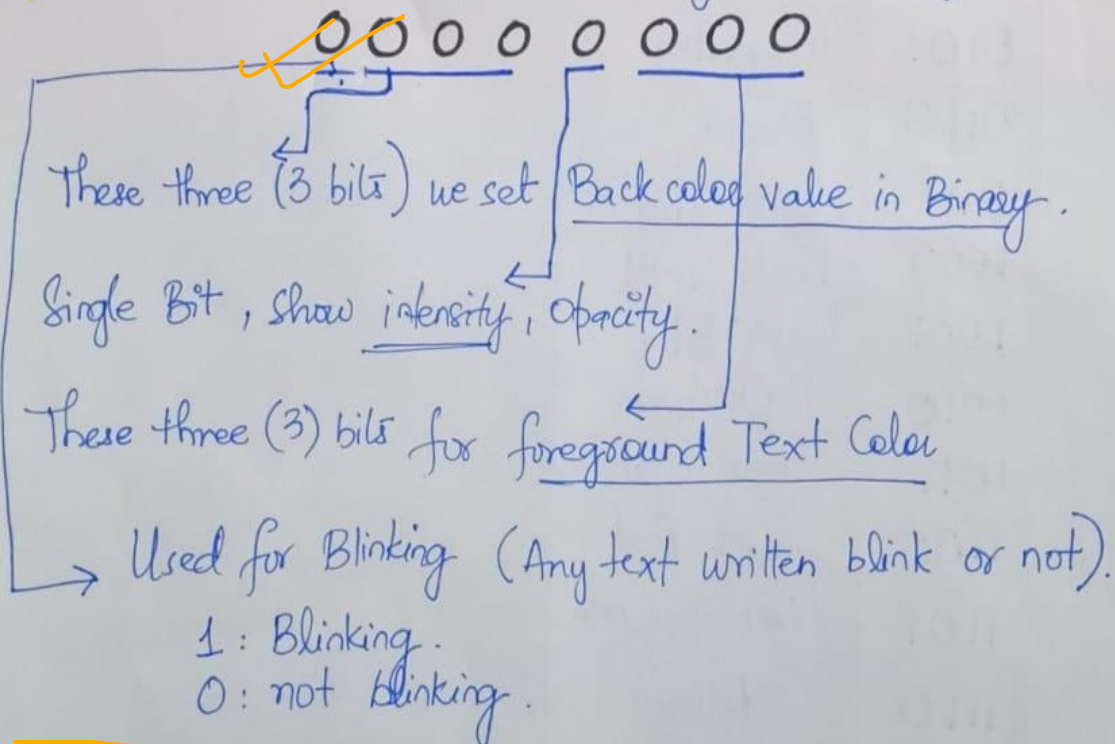 0 0 0 0 0 0 0 0
These three (3 bits) we set Back color value in Binary.
Single Bit, show intensity, opacity.
These three (3) bits for foreground Text Color
Used for Blinking (Any text written blink or not).
1 : Blinking.
0 : not blinking.